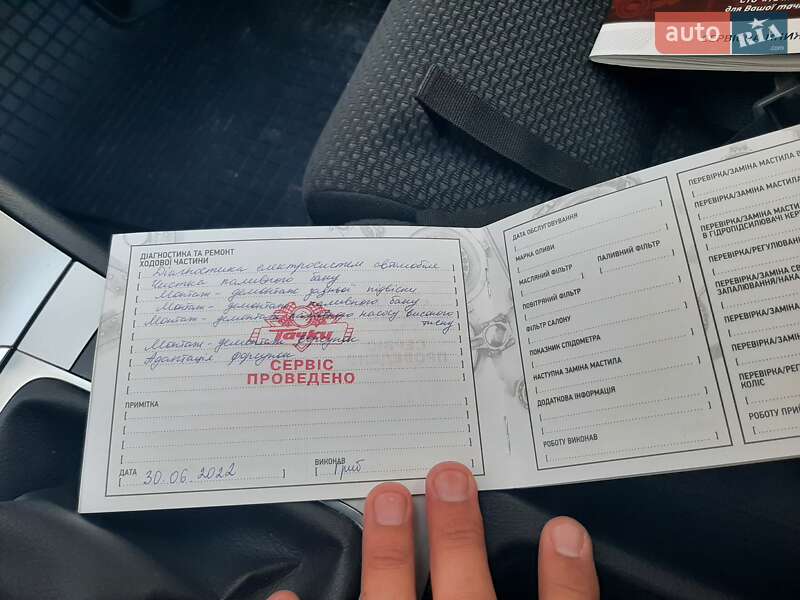 для Вашої тачк
auto RIA
ДІАГНОСТИКА ТА РЕМОНТ
ХОДОВОЇ ЧАСТИНИ
Діагностика електросистем автомобіля
Чистка паливного баку
Монтаж-демонтаж задньої підвіски
Монтаж-демонтаж паливного баку
Монтаж-демонтаж насосу високого
тиску
Монтаж-демонтаж форсунок
Адаптація форсунок
Тачки
СЕРВІС
ПРОВЕДЕНО
ПРИМІТКА
ДАТА 30.06.2022
ВИКОНАВ Гриб
ДАТА ОБСЛУГОВУВАННЯ
МАРКА ОЛИВИ
МАСЛЯНИЙ ФІЛЬТР ПАЛИВНИЙ ФІЛЬТР
ПОВІТРЯНИЙ ФІЛЬТР
ФІЛЬТР САЛОНУ
ПОКАЗНИК СПІДОМЕТРА
НАСТУПНА ЗАМІНА МАСТИЛА
ДОДАТКОВА ІНФОРМАЦІЯ
РОБОТУ ВИКОНАВ
ПЕРЕВІРКА/ЗАМІНА МАСТИЛА В
ПЕРЕВІРКА/ЗАМІНА МАСТИЛА
ПЕРЕВІРКА/ЗАМІНА МАСТИ
В ГІДРОПІДСИЛЮВАЧІ КЕР
ПЕРЕВІРКА/РЕГУЛЮВАНН
ПЕРЕВІРКА/ЗАМІНА СВ
ЗАПАЛЮВАННЯ/НАКА
ПЕРЕВІРКА/ЗАМІНА
ПЕРЕВІРКА/ЗАМІН
ПЕРЕВІРКА/РЕГ
КОЛІС
РОБОТУ ПРИ